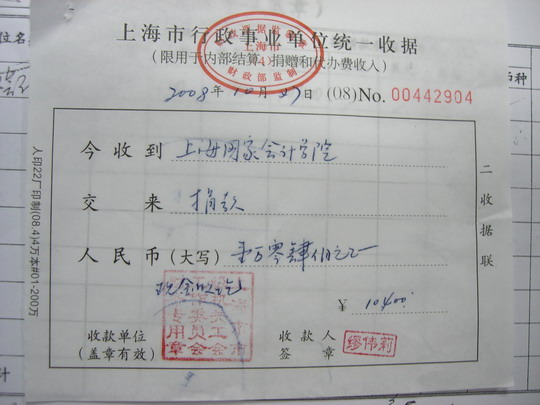 上海市行政事业单位统一收据
(限用于内部结算、捐赠和代办费收入)
上海市
(4)
财政部监制
2008年10月27日 (08)No.00442904
今收到 上海国家会计学院
交来 捐款
人民币(大写) 万零肆佰元
¥ 10400
收款单位
(盖章有效)
收款人
签章
缪伟莉
二收据联
人印22厂印制(08.4)4万本#01-200万